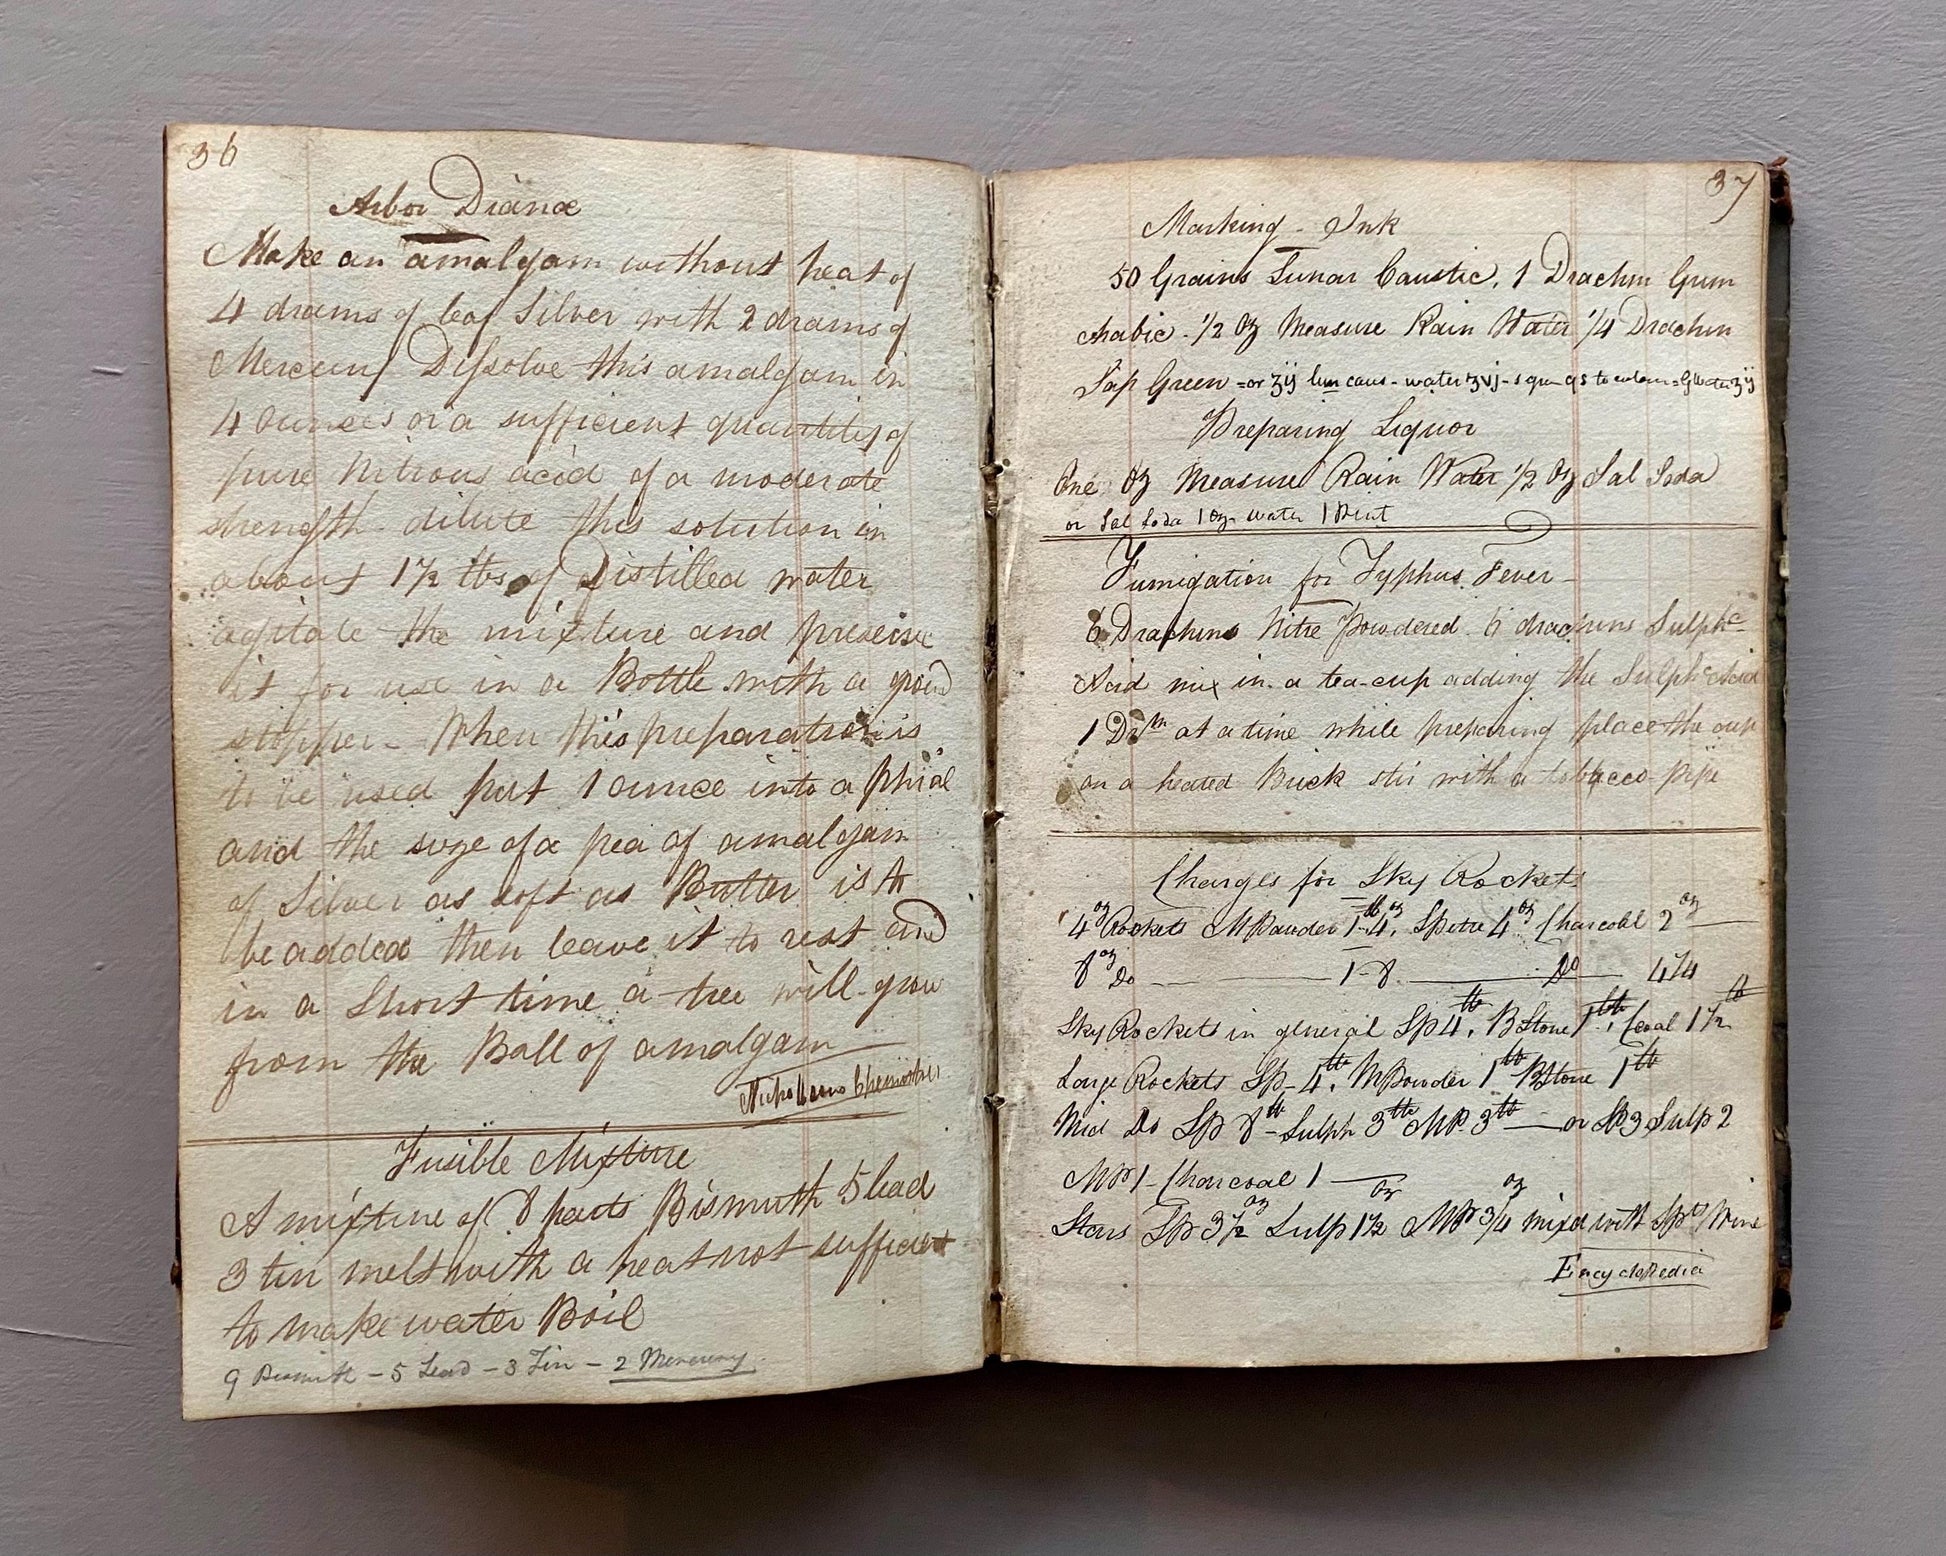 36
Arbor Dianæ
Make an amalgam without heat of
4 drams of leaf Silver with 2 drams of
Mercury Dissolve this amalgam in
4 ounces or a sufficient quantity of
pure Nitrous acid of a moderate
strength - dilute this solution in
about 1 1/2 lbs of Distilled water
agitate the mixture and preserve
it for use in a Bottle with a ground
stopper - When this preparation is
to be used put 1 ounce into a phial
and the size of a pea of amalgam
of Silver as soft as Butter is to
be added then leave it to rest and
in a Short time a tree will grow
from the Ball of amalgam
Fusible Mixture
A mixture of 8 parts Bismuth 5 lead
3 tin melt with a heat not sufficient
to make water Boil
9 Bismuth - 5 Lead - 3 Tin - 2 Mercury
37
Marking - Ink
50 Grains Lunar Caustic, 1 Drachm Gum
Arabic - 1/2 Oz Measure Rain Water 1/4 Drachm
Sap Green = or ʒij lun caus - water ʒvj -
Preparing Liquor
One Oz Measure Rain Water 1/2 Oz Sal Soda
or Sal Soda 1 Oz water 1 Pint
Fumigation for Typhus Fever -
6 Drachms Nitre Powdered 6 drachms Sulphc
Acid mix in a tea-cup adding the Sulphc Acid
1 Drm at a time while preparing place the cup
on a heated Brick stir with a tobacco pipe
Charges for Sky Rockets
4 oz Rockets MPowder 1 lb 4 oz, SPetre 4 oz Charcoal 2 oz —
8 oz Do — 1 - 8 — Do — 4 1/4
Sky Rockets in general SP 4 lb, BStone 1 lb, Ccoal 1 1/2 lb
Large Rockets SP - 4 lb, MPowder 1 lb BStone 1 lb
Mid Do SP 8 lb - Sulph 3 lb MP 3 lb — or SP 3 Sulp 2
MP 1 - Charcoal 1 —
Stars SP 3 1/2 oz Sulp 1 1/2 oz MP 3/4 oz mixd with Spts Wine
Encyclopedia